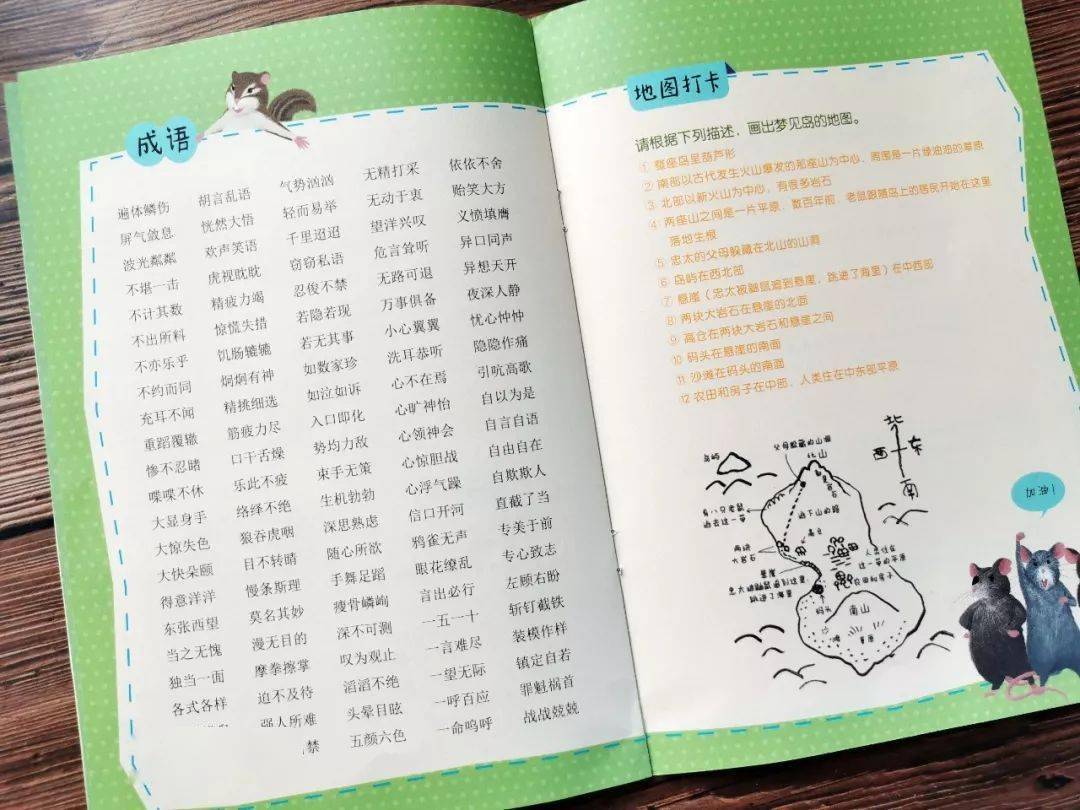 成语
遍体鳞伤
屏气敛息
波光粼粼
不堪一击
不计其数
不出所料
不亦乐乎
不约而同
充耳不闻
重蹈覆辙
惨不忍睹
喋喋不休
大显身手
大惊失色
大快朵颐
得意洋洋
东张西望
当之无愧
独当一面
各式各样
胡言乱语
恍然大悟
欢声笑语
虎视眈眈
精疲力竭
惊慌失措
饥肠辘辘
炯炯有神
精挑细选
筋疲力尽
口干舌燥
乐此不疲
络绎不绝
狼吞虎咽
目不转睛
慢条斯理
莫名其妙
漫无目的
摩拳擦掌
迫不及待
强人所难
禁
气势汹汹
轻而易举
千里迢迢
窃窃私语
忍俊不禁
若隐若现
若无其事
如数家珍
如泣如诉
入口即化
势均力敌
束手无策
生机勃勃
深思熟虑
随心所欲
手舞足蹈
瘦骨嶙峋
深不可测
叹为观止
滔滔不绝
头晕目眩
五颜六色
无精打采
无动于衷
望洋兴叹
危言耸听
无路可退
万事俱备
小心翼翼
洗耳恭听
心不在焉
心旷神怡
心领神会
心惊胆战
心浮气躁
信口开河
鸦雀无声
眼花缭乱
言出必行
一五一十
一言难尽
一望无际
一呼百应
一命呜呼
依依不舍
贻笑大方
义愤填膺
异口同声
异想天开
夜深人静
忧心忡忡
隐隐作痛
引吭高歌
自以为是
自言自语
自由自在
自欺欺人
直截了当
专美于前
专心致志
左顾右盼
斩钉截铁
装模作样
镇定自若
罪魁祸首
战战兢兢
地图打卡
请根据下列描述，画出梦见岛的地图。
① 整座岛呈葫芦形
② 南部以古代发生火山爆发的那座山为中心，周围是一片绿油油的草原
③ 北部以新火山为中心，有很多岩石
④ 两座山之间是一片平原，数百年前，老鼠跟随岛上的居民开始在这里
落地生根
⑤ 忠太的父母躲藏在北山的山洞
⑥ 岛屿在西北部
⑦ 悬崖（忠太被鼬鼠追到悬崖，跳进了海里）在中西部
⑧ 两块大岩石在悬崖的北面
⑨ 高仓在两块大岩石和悬崖之间
⑩ 码头在悬崖的南面
11 沙滩在码头的南面
12 农田和房子在中部，人类住在中东部平原
北
西
东
南
父母躲藏的山洞
北山
岛屿
岩石
有八只老鼠
过去这一带
逃下山的路
高仓
两块
大岩石
人类住在
这一带的平原
悬崖
忠太被鼬鼠追到这里，
跳进了海里
农田和房子
码头
南山
草原